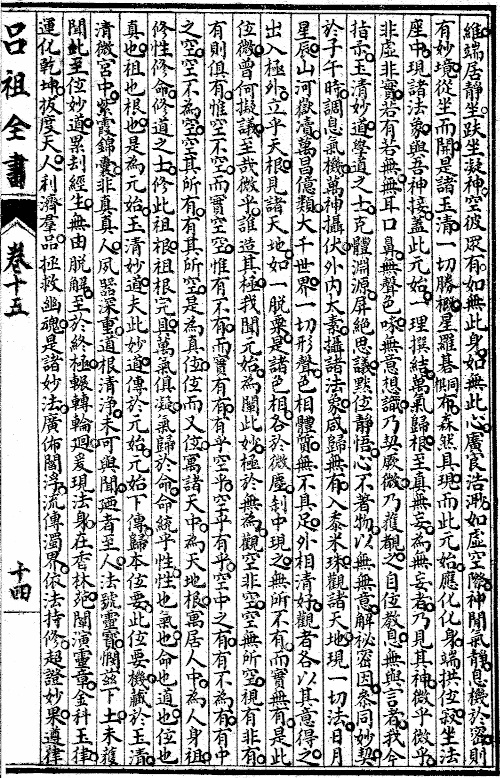 維端居靜坐趺坐凝神空彼眾有如無此身如無此心廣㝗浩渺如虛空際神閒氣靜息機於密則
有妙境從坐而開是諸玉清一切勝概星羅碁布森然具現而此元始應化化身端拱位寂坐法
座中現諸法象與吾神接蓋此元始一理撰結萬氣歸根至真無妄為無妄者乃見其神微乎微乎
非虛非實若有若無無耳口鼻無聲色嗅無意想識乃契厥微乃獲觀之自位教息無與言者我今
指示玉清妙道學道之士克體淵源屏絕思議默位靜悟心不著物以無無意解祕密因參同妙契
於子午時調息氣機萬神攝伏外內太素攝諸法象咸歸無有入黍米珠觀諸天地現一切法日月
星辰山河嶽瀆萬昌億類大千世界一切形聲色相體質無不具足外相清好觀者各以其意得之
出入極外立乎天根見諸天地如一脫粟是諸色相各於微塵剎中現之無所不有而實無有是此
位微曾何擬議至哉微乎誰造其極我聞元始為闡此妙極於無為觀空非空空無所空視有非有
有則俱有惟空不空而實空空惟有不有而實有有有乎空乎空乎有乎空中之有有不為有有中
之空空不為空空其所有有其所空是為真位位而又位寓諸天中為天地根寓居人中為人身祖
修性修命修道之士修此祖根祖根完具萬氣俱凝氣歸於命命統乎性性也氣也命也道也位也
真也祖也根也是為元始玉清妙道夫此妙道傳於元始元始下傳歸本位要此位要機藏於玉清
清微宮中紫霞錦囊非真真人夙器深重道根清淨未可與聞迺者至人法號靈寶憫茲下土未獲
聞此至位妙道累刦經生無由脫解至於終極輾轉輪迴爰現法身在香林苑闡演靈章金科玉律
運化乾坤拔度天人利濟羣品拯救幽魂是諸妙法廣佈閻浮流傳濁界依法持修超證妙果遵律
呂祖全書
卷十五
十四